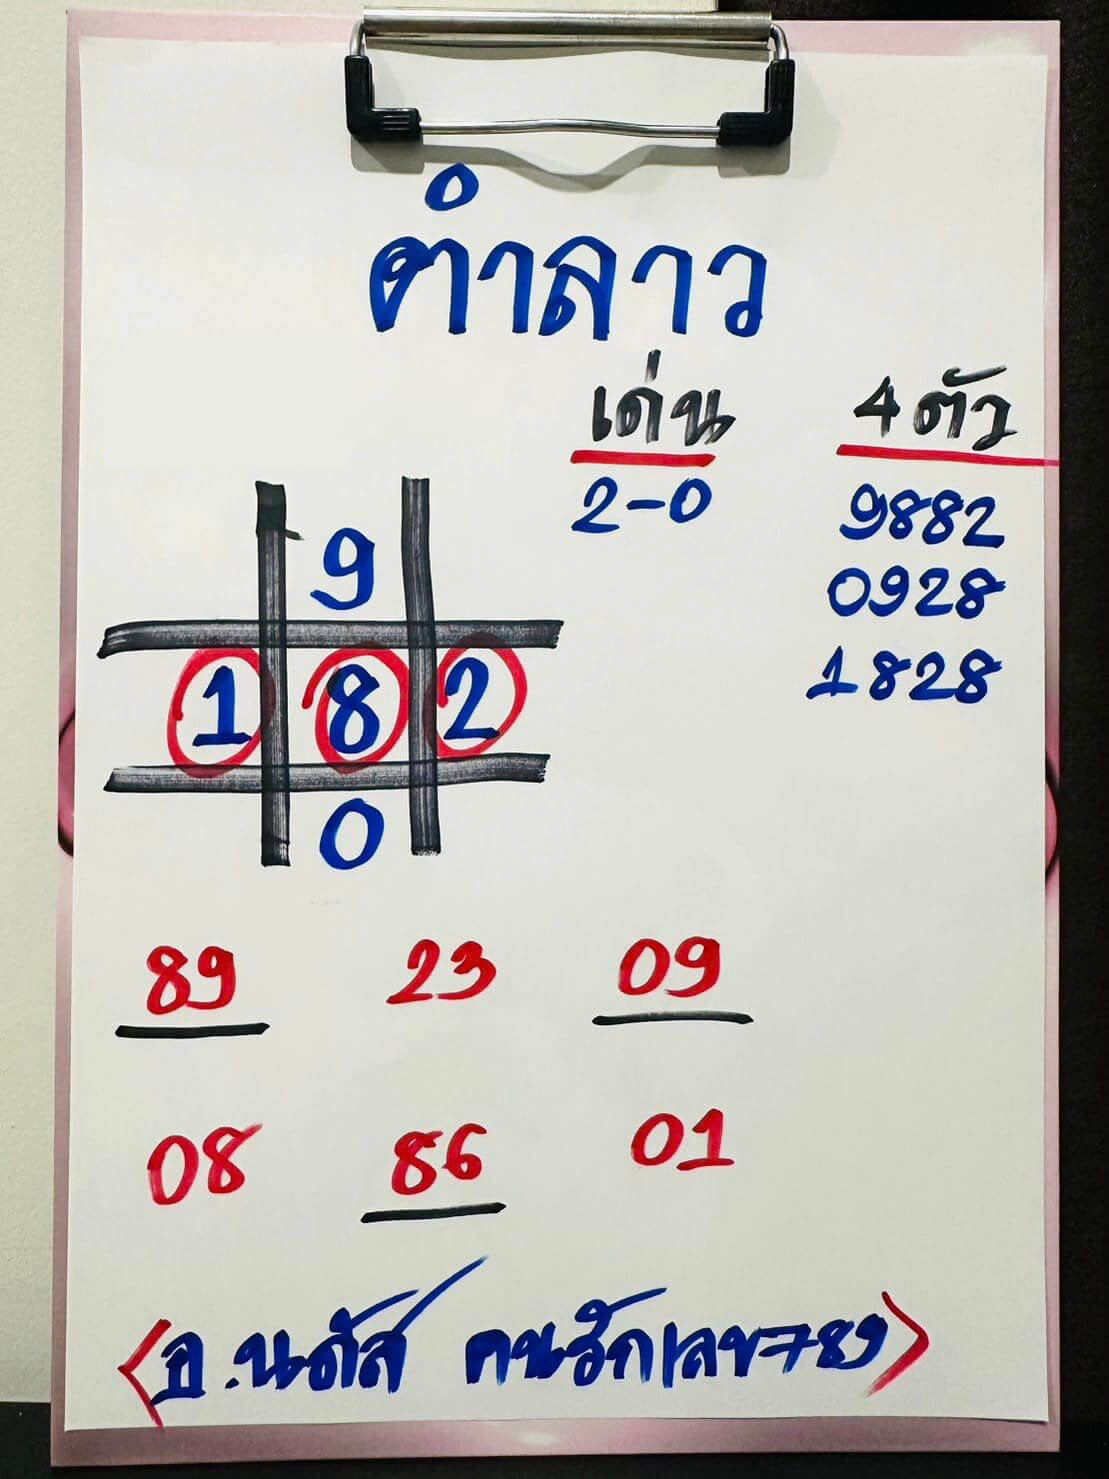 ตำลาว
เด่น 4ตัว
2-0 9882
9 0928
1 8 2 1828
0
89 23 09
08 86 01
<อ.นดัส คนรักเลข789>